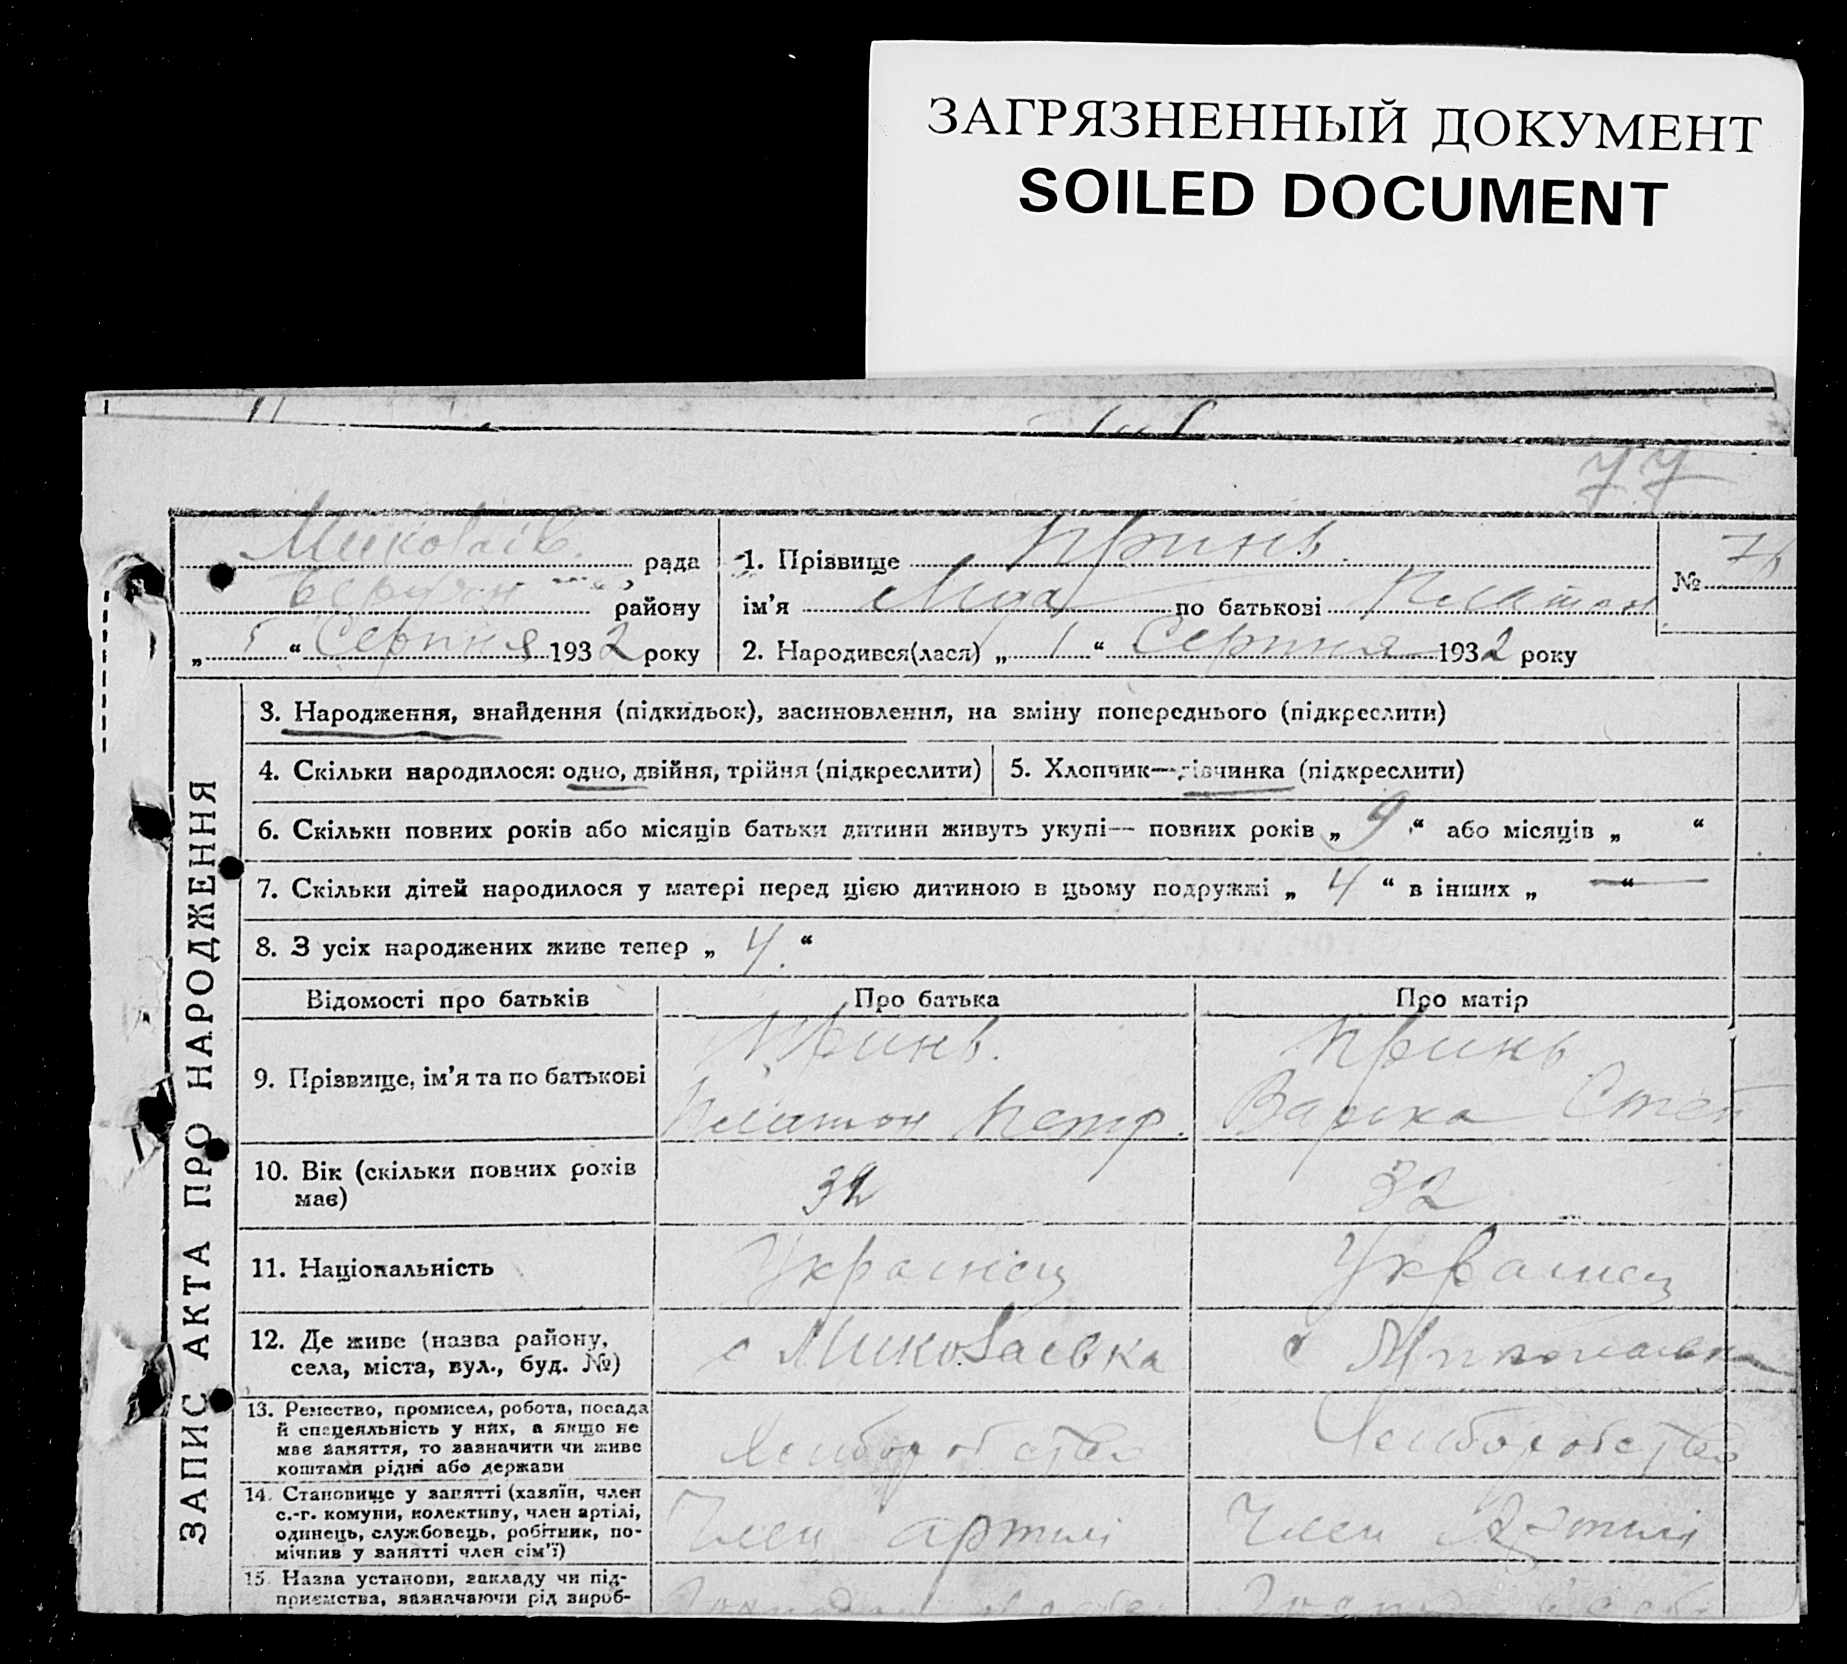 ЗАГРЯЗНЕННЫЙ ДОКУМЕНТ
SOILED DOCUMENT
77
Миколаїв. рада
району
„ “ Серпня 1932 року
1. Прізвище Принь.
ім’я Лида по батькові Платон
№ 76
2. Народився(лася) „ 1 “ Серпня 1932 року
ЗАПИС АКТА ПРО НАРОДЖЕННЯ
3. Народження, знайдення (підкидьок), засиновлення, на зміну попереднього (підкреслити)
4. Скільки народилося: одно, двійня, трійня (підкреслити)
5. Хлопчик—дівчинка (підкреслити)
6. Скільки повних років або місяців батьки дитини живуть укупі— повних років „ 9 “ або місяців „ “
7. Скільки дітей народилося у матері перед цією дитиною в цьому подружжі „ 4 “ в інших „ — “
8. З усіх народжених живе тепер „ 4. “
Відомості про батьків Про батька Про матір
9. Прізвище, ім’я та по батькові
Принь.
Платон Петр.
Принь
Варка Степ
10. Вік (скільки повних років
має)
32
32
11. Національність
Украінец
Украинец
12. Де живе (назва району,
села, міста, вул., буд. №)
с Миколаевка
с Миколаевка
13. Ремество, промисел, робота, посада
й спецеяльність у них, а якщо не
має заняття, то зазначити чи живе
коштами рідні або держави
Хлиборобство
Хлиборобство
14. Становище у занятті (хазяїн, член
с.-г. комуни, колективу, член артілі,
одинець, службовець, робітник, по-
мічнив у занятті член сім’ї)
Член артилі
Член Артилі
15. Назва установи, закладу чи під-
приємства, зазначаючи рід вироб-